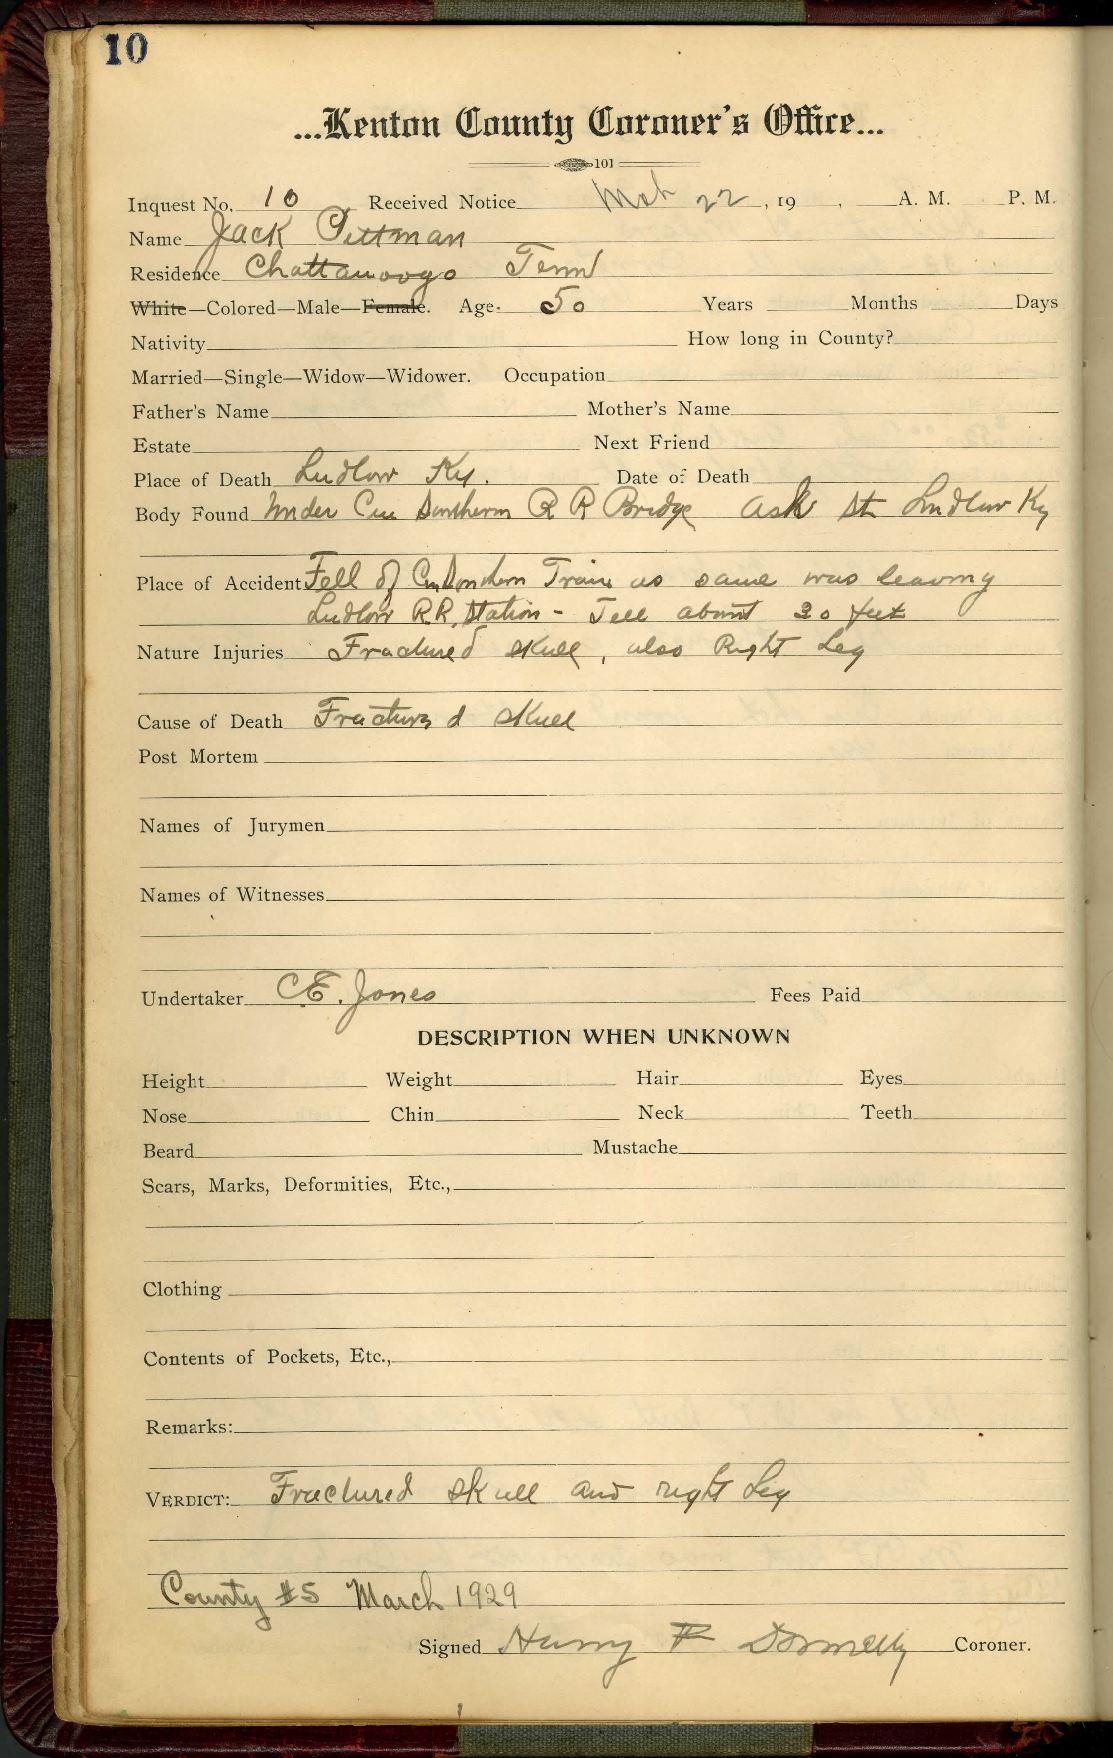 10
...Kenton County Coroner's Office...
101
Inquest No. 10 Received Notice Mch 22, 19 , A. M. P. M.
Name Jack Pittman
Residence Chattanoogo Tenn
White—Colored—Male—Female. Age. 50 Years Months Days
Nativity How long in County?
Married—Single—Widow—Widower. Occupation
Father's Name Mother's Name
Estate Next Friend
Place of Death Ludlow Ky. Date of Death
Body Found Under Cin Southern R R Bridge Ash St Ludlow Ky
Place of Accident Fell of Cin Southern Train as same was leaving
Ludlow R.R. Station - Fell about 30 feet
Nature Injuries Fractured Skull, also Right Leg
Cause of Death Fractured Skull
Post Mortem
Names of Jurymen
Names of Witnesses
Undertaker C.E. Jones Fees Paid
DESCRIPTION WHEN UNKNOWN
Height Weight Hair Eyes
Nose Chin Neck Teeth
Beard Mustache
Scars, Marks, Deformities, Etc.,
Clothing
Contents of Pockets, Etc.,
Remarks:
VERDICT: Fractured Skull and right Leg
County #5 March 1929
Signed Harry F Donnelly Coroner.